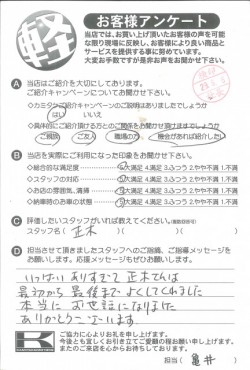 軽
お客様アンケート
当店では、お買い上げ頂いたお客様の声を可能
な限り現場に反映し、お客様により良い商品と
サービスを提供する事に努めています。
大変お手数ですが是非お声をお聞かせ下さい。
A 当店はご紹介を大切にしております。
ご紹介キャンペーンについてお聞かせ下さい。
はい いいえ
ご親戚 ご友人 職場の方 機会があれば紹介したい
B 当店を実際にご利用になった印象をお聞かせ下さい。
◇総合的な満足度 5大満足 4.満足 3.ふつう 2.やや不満 1.不満
◇スタッフの対応 5大満足 4.満足 3.ふつう 2.やや不満 1.不満
◇お店の雰囲気、清掃 5大満足 4.満足 3.ふつう 2.やや不満 1.不満
◇納車時のお車の状態 5大満足 4.満足 3.ふつう 2.やや不満 1.不満
C 評価したいスタッフがいれば教えてください。(複数回答可)
スタッフ名( 正木 )
D 担当させて頂きましたスタッフへのご指摘、ご指導メッセージを
お願いします。応援メッセージもぜひお願いします。
いっぱいありすぎて 正木さんは
最初から最後まで よくしてくれました
本当に お世話になりました
ありがとうございます。
ご協力に心よりお礼を申し上げます。
今後とも宜しくお引き立てご愛顧の程お願い申し上げます。
またのご来店を心からお待ちしております。
担当( 亀井 )